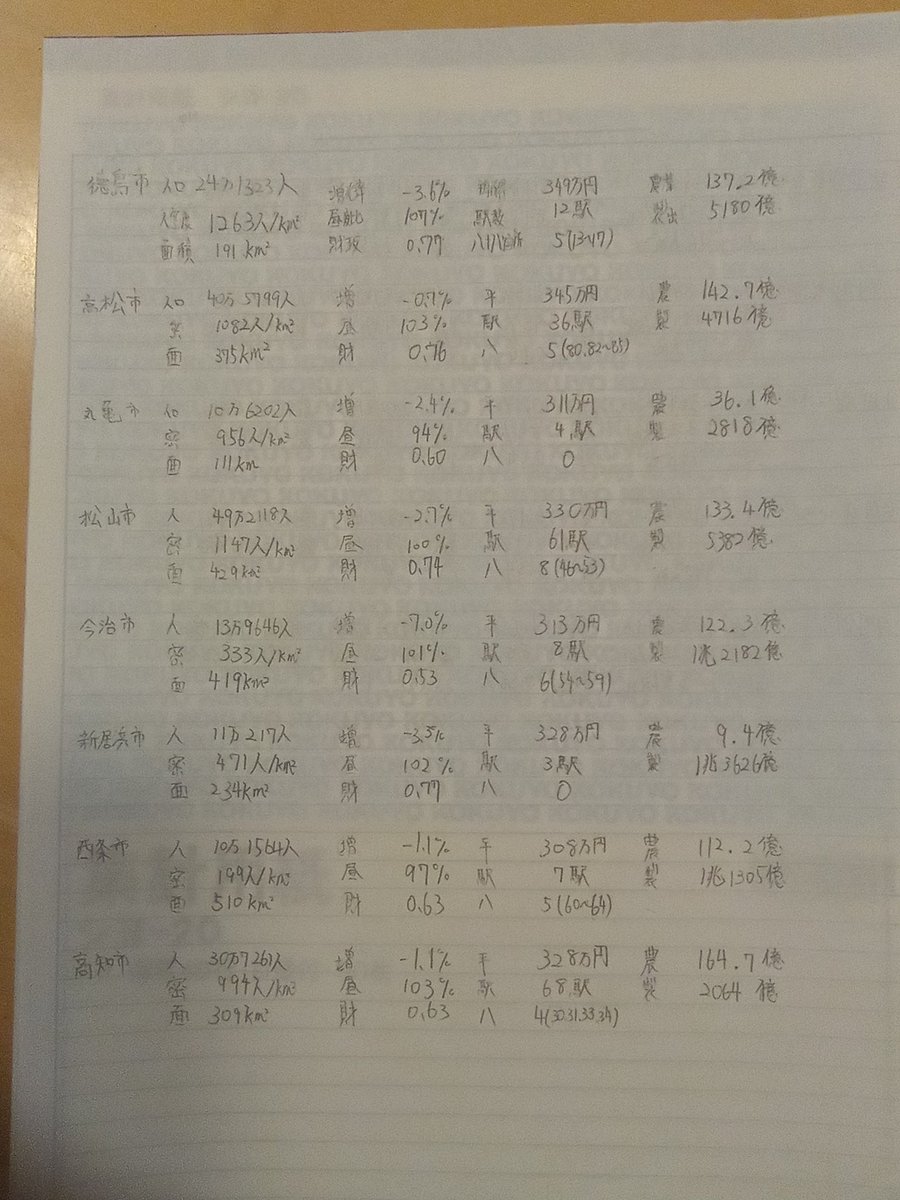 徳島市 人口 24万1323人 増減率 -3.6% 349万円 農業 137.2億
人密度 1263人/km² 昼夜比 107% 駅数 12駅 製出 5180億
面積 191km² 財政 0.77 5(13~17)
高松市 人口 40万5799人 増 -0.7% 平 345万円 農 142.7億
密 1082人/km² 昼 103% 駅 36駅 製 4716億
面 375km² 財 0.76 八 5(80.82~85)
丸亀市 人口 10万6202人 増 -2.4% 平 311万円 農 36.1億
密 956人/km² 昼 94% 駅 4駅 製 2818億
面 111km 財 0.60 八 0
松山市 人 49万2118人 増 -2.7% 平 330万円 農 133.4億
密 1147人/km² 昼 100% 駅 61駅 製 5382億
面 429km² 財 0.74 八 8(46~53)
今治市 人 13万9646人 増 -7.0% 平 313万円 農 122.3億
密 333人/km² 昼 101% 駅 8駅 製 1兆2182億
面 419km² 財 0.53 八 6(54~59)
新居浜市 人 11万217人 増 -3.5% 平 328万円 農 9.4億
密 471人/km² 昼 102% 駅 3駅 製 1兆3626億
面 234km² 財 0.77 八 0
西条市 人 10万1564人 増 -1.1% 平 308万円 農 112.2億
密 199人/km² 昼 97% 駅 7駅 製 1兆1305億
面 510km² 財 0.63 八 5(60~64)
高知市 人 30万7261人 増 -1.1% 平 328万円 農 164.7億
密 994人/km² 昼 103% 駅 68駅 製 2064億
面 309km² 財 0.63 八 4(30.31.33.34)